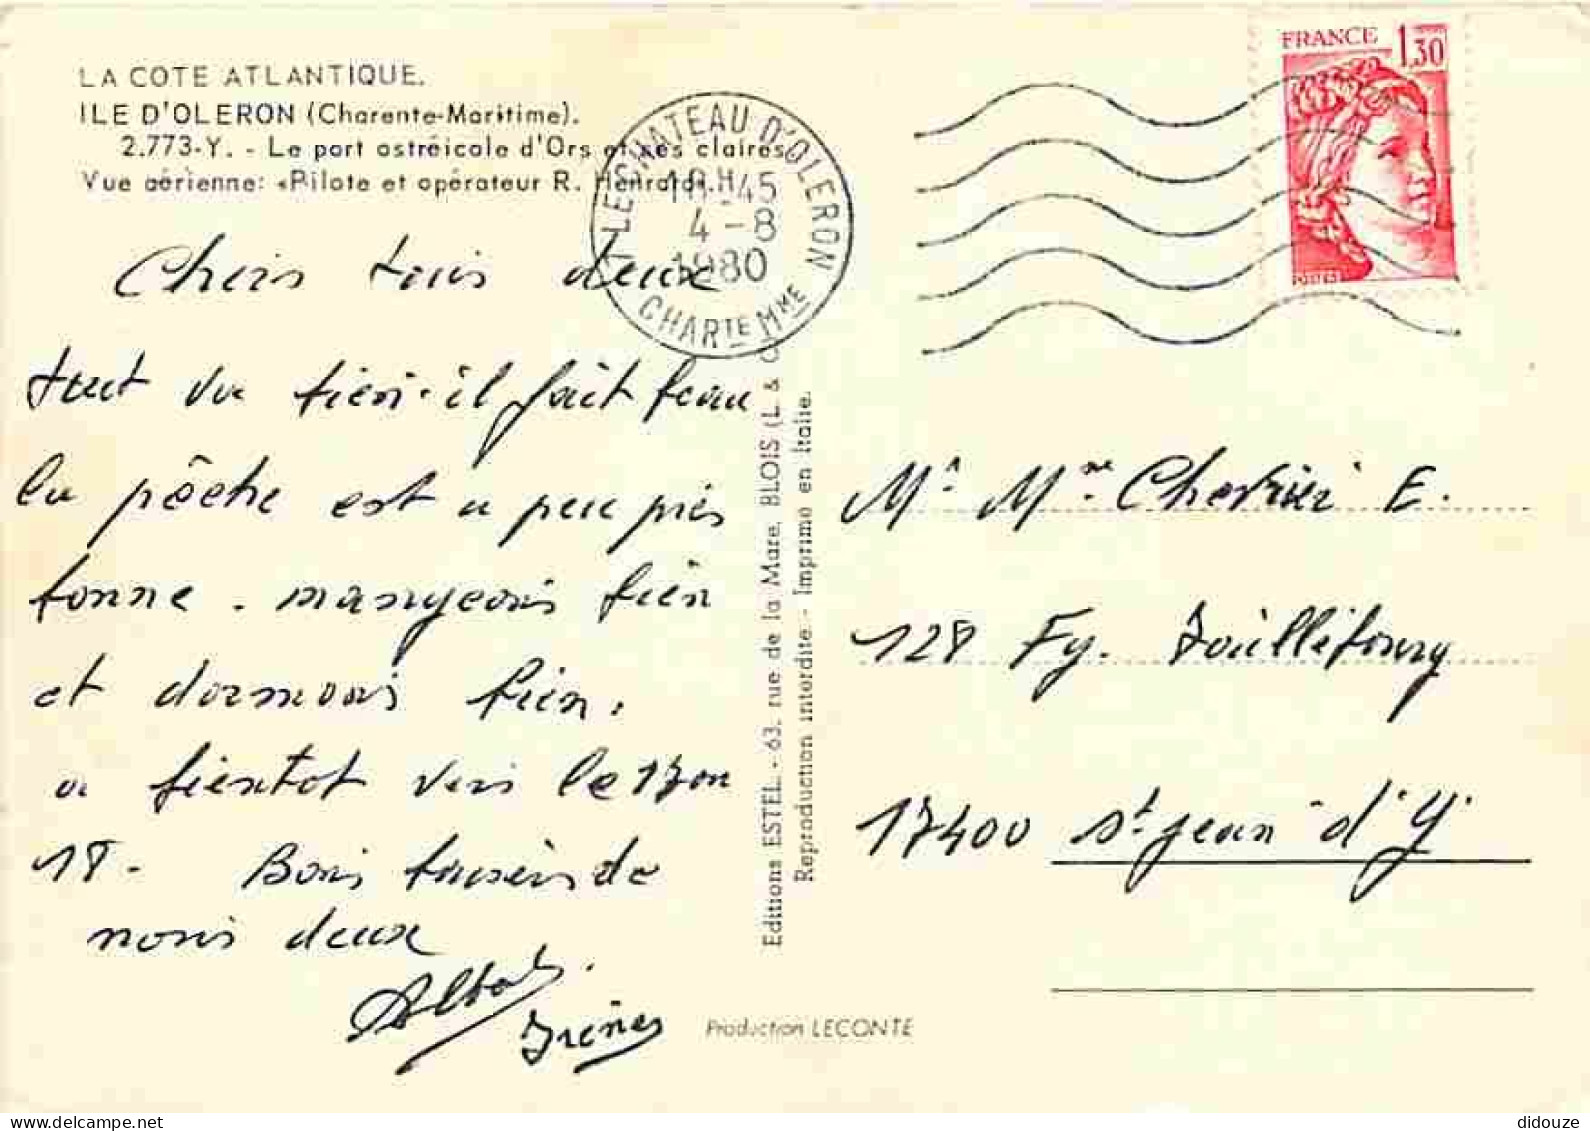 LA COTE ATLANTIQUE.
ILE D'OLERON (Charente-Maritime).
2.773-Y. - Le port ostréicole d'Ors et ses claires
Vue aérienne: «Pilote et opérateur R. Henrard».
LE CHATEAU D'OLERON
18H45
4-8
1980
CHARTE MME
FRANCE 1,30
Chers tous deux
tout va bien. il fait beau
la pêche est a peu près
bonne. mangeons bien
et dormons bien.
a bientot vers le 17 ou
18. Bons baisers de
nous deux
Irènes
Editions ESTEL. - 63, rue de la Mare, BLOIS (L. & C
Reproduction interdite. - Imprimé en Italie.
Production LECONTE
Mr Mme Cherrier E.
128 Fg. Taillebourg
17400 St-Jean d'Y
didouze